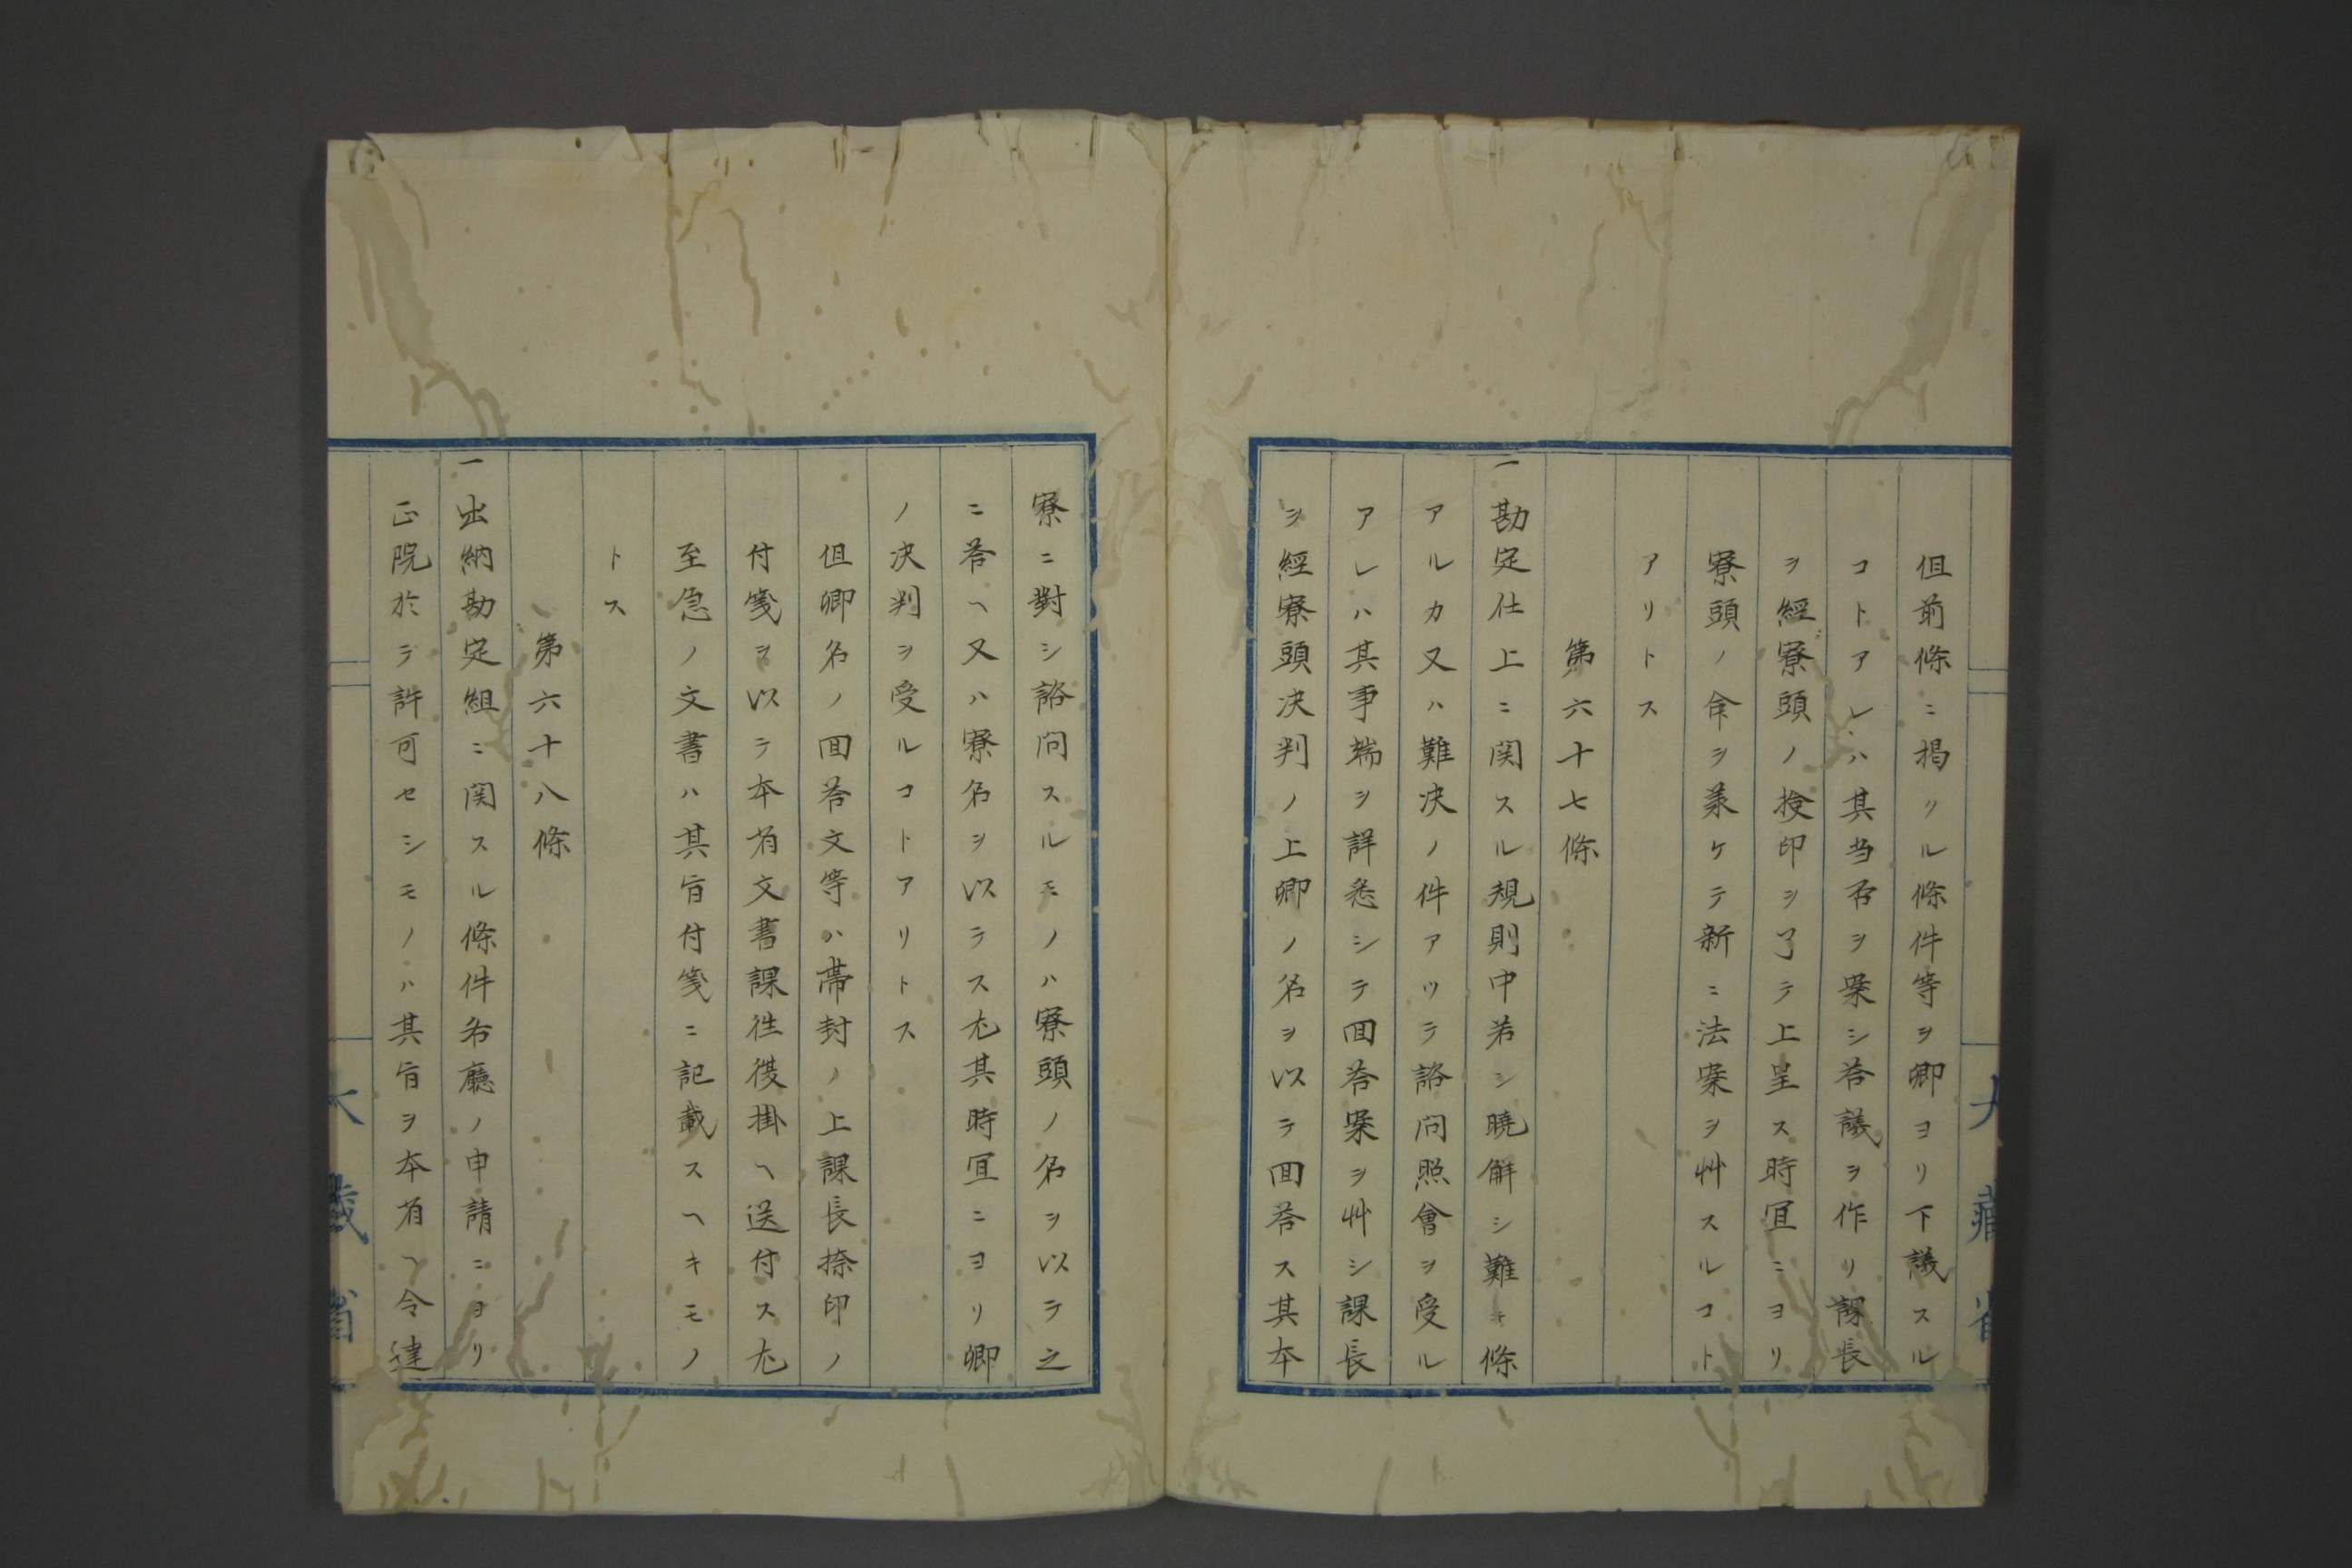 但前條ニ掲クル條件等ヲ卿ヨリ下議スル
コトアレハ其当否ヲ案シ荅議ヲ作リ課長
ヲ經寮頭ノ捡印ヲ了テ上呈ス時宜ニヨリ
寮頭ノ命ヲ羕ケテ新ニ法案ヲ艸スルコト
アリトス
第六十七條
一勘定仕上ニ関スル規則中若シ曉解シ難キ條
アルカ又ハ難决ノ件アツテ諮問照會ヲ受ル
アレハ其事端ヲ詳悉シテ囬荅案ヲ艸シ課長
ヲ經寮頭决判ノ上卿ノ名ヲ以テ囬荅ス其本
寮ニ對シ諮問スルモノハ寮頭ノ名ヲ以テ之
ニ荅ヘ又ハ寮名ヲ以テス尤其時宜ニヨリ卿
ノ决判ヲ受ルコトアリトス
但卿名ノ囬荅文等ハ帶封ノ上課長捺印ノ
付箋ヲ以テ本省文書課徃復掛ヘ送付ス尤
至急ノ文書ハ其旨付箋ニ記載スヘキモノ
トス
第六十八條
一出納勘定組ニ関スル條件各廳ノ申請ニヨリ
正院於テ許可セシモノハ其旨ヲ本省ヘ令達
大藏省
大藏省